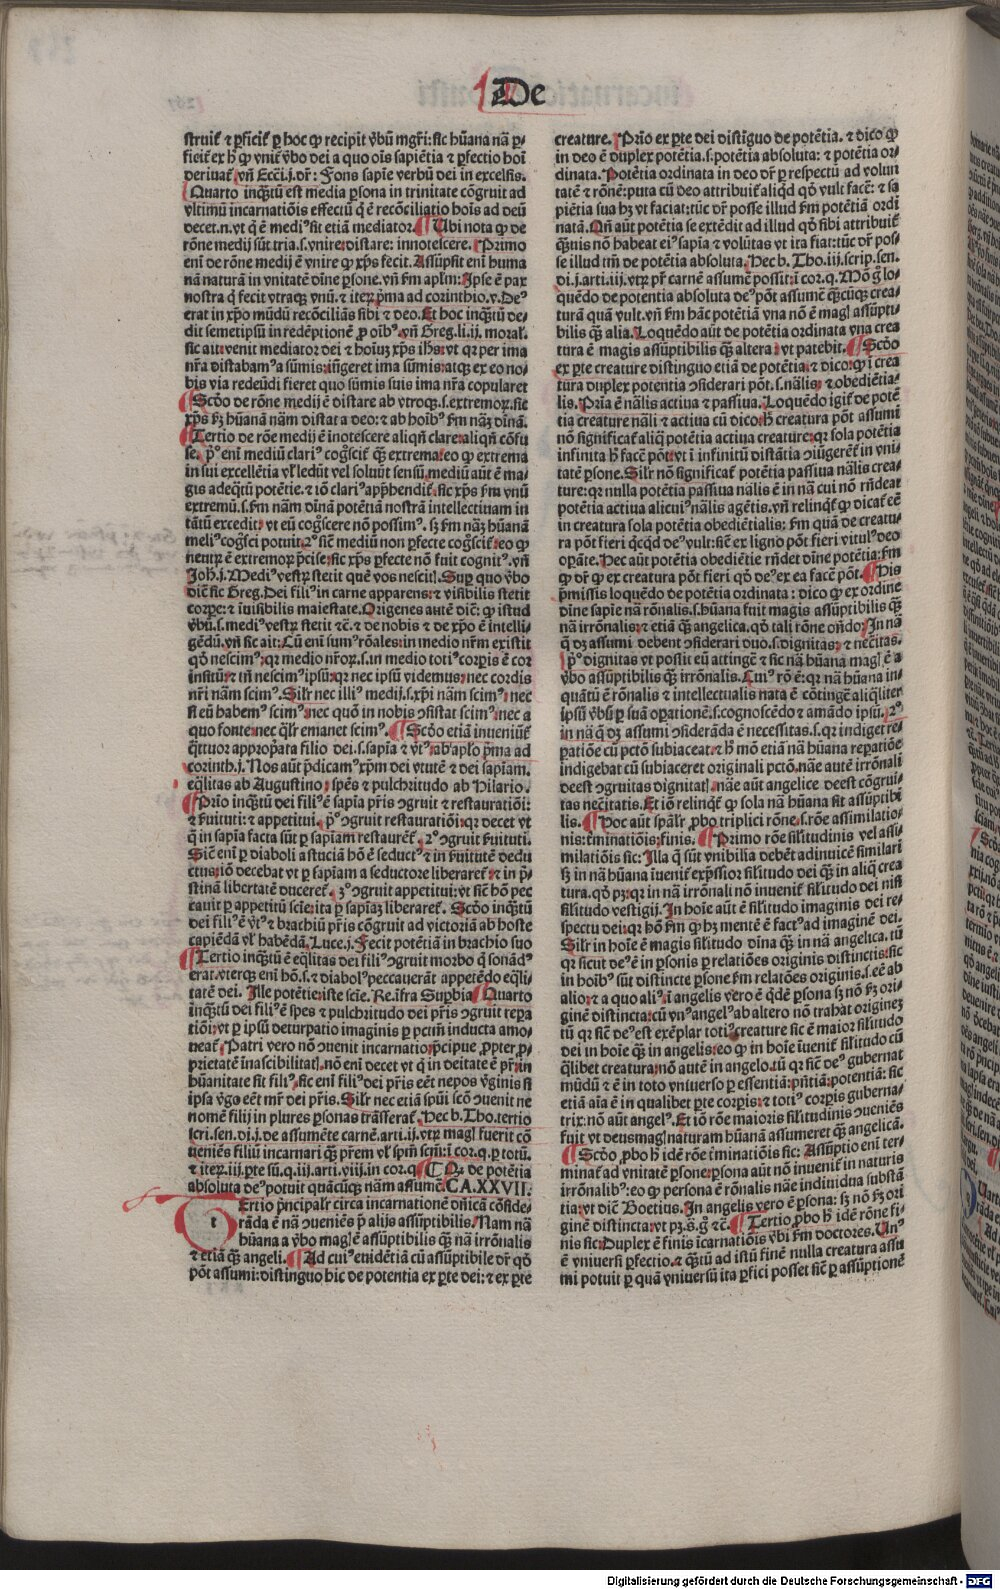 De
struit̄ ⁊ ꝑficit̄ ꝑ hoc ꝙ recipit v̄bū mgr̄i: sic hūana nā ꝑ-
ficit̄ ex h̄ ꝙ vnit̄ v̄bo dei a quo oīs sapiētia ⁊ ꝑfectio hoī
deriuat̄. vn̄ Ecci.j.dr̄: Fons sapiē verbū dei in excelsis.
Quarto inq̄tū est media ꝑsona in trinitate cōgruit ad
vltimū incarnatiōis effectū q̄ ē recōciliatio hoīs ad deū
decet.n.vt q̄ ē mediꝰ sit etiā mediator. Ubi nota ꝙ de
rōne medij sūt tria.s.vnire: distare: innotescere. Primo
enī de rōne medij ē vnire ꝙ xp̄s fecit. Assūpsit enī huma
nā naturā in vnitate dīne ꝑsone. vn̄ ẜm apl̄m: Ipse ē pax
nostra q̄ fecit vtraqꝫ vnū. ⁊ iteꝝ p̄ma ad corinthio.v. Deꝰ
erat in xp̄o mūdū recōciliās sibi ⁊ deo. Et hoc inq̄tū de-
dit semetipsū in redēptionē ꝓ oībꝰ. vn̄ Greg.li.ij. moral.
sic ait: venit mediator dei ⁊ hoīuꝫ xp̄s ih̄s: vt qꝛ per ima
nr̄a distabamꝰ a sūmis: iūgeret ima sūmis: atqꝫ ex eo no-
bis via redeūdi fieret quo sūmis suis ima nr̄a copularet
Scd̄o de rōne medij ē distare ab vtroqꝫ.s.extremoꝝ. sic
xp̄s ẜꝫ hūanā nām distat a deo: ⁊ ab hoībꝰ ẜm nāꝫ dīnā.
Tertio de rōe medij ē inotescere aliqn̄ clare: aliqn̄ cōfu
se. pꝰ enī mediū clariꝰ coḡscit̄ q̄ꝫ extrema: eo ꝙ extrema
in sui excellētia vl̓ ledūt vel soluūt sensū mediū aūt ē ma-
gis adeq̄tū potētie. ⁊ iō clariꝰ app̄hendit̄. sic xp̄s ẜm vnū
extremū.s.ẜm nām dīnā potētiā nostrā intellectiuam in
tātū excedit: vt eū cog̓scere nō possimꝰ. sꝫ ẜm nāꝫ hūanā
meliꝰ cog̓sci potuit. 2ꝰ sic̄ mediū non ꝑfecte cog̓scit̄: eo ꝙ
neutꝝ ē extremoꝝ p̄cise: sic xp̄s ꝑfecte nō fuit cognitꝰ. vn̄
Joh.j. Mediꝰ vestꝝ stetit quē vos nescitl. Suꝑ quo v̄bo
dic̄ sic Greg. Dei filiꝰ in carne apparens: ⁊ visibilis stetit
corꝑe: ⁊ īuisibilis maiestate. Origenes autē dic̄: ꝙ istud
v̄bū.s.mediꝰ vestꝝ stetit ⁊c̄. ⁊ de nobis ⁊ de xp̄o ē intelli-
gēdū. vn̄ sic ait: Cū enī sumꝰ rōales: in medio nr̄m existit
qd̓ nescimꝰ: qꝛ medio nr̄oꝝ.s.in medio totiꝰ corꝑis ē cor
insitū: ⁊ tn̄ nescimꝰ ipsū: qꝛ nec ipsū videmus: nec cordis
nr̄i nām scimꝰ. Silr nec illiꝰ medij.s.xp̄i nām scimꝰ: nec
si eū habemꝰ scimꝰ: nec quō in nobis ɔsistat scimꝰ: nec a
quo fonte: nec q̄lr̄ emanet scimꝰ. Scd̄o etiā inueniūt̄
q̄ttuor appropata filio dei.s.sapīa ⁊ v̓tꝰ: ab aplo p̄ma ad
corinth.j. Nos aūt p̄dicamꝰ xp̄m dei v̓tutē ⁊ dei sapiam.
eq̄litas ab Augustino: spēs ⁊ pulchritudo ab Hilario.
Prīo inq̄tū dei filiꝰ ē sapīa pr̄is ɔgruit ⁊ restauratiōi:
⁊ ẜuituti: ⁊ appetitui. pꝰ ɔgruit restauratiōi: qꝛ decet vt
q̄ in sapīa facta sūt ꝑ sapīam restaurēt̄. 2ꝰ ɔgruit ẜuituti.
Sic̄ enī ꝑ diaboli astuciā hō ē seductꝰ ⁊ in ẜuitutē dedu
ctus: iō decebat vt ꝑ sapīam a seductore liberaret̄: ⁊ in p̄-
stinā libertatē duceret̄. 3ꝰ ɔgruit appetitui: vt sic̄ hō pec
cauit ꝑ appetitū scie: ita ꝑ sapīaꝫ liberaret̄. Scd̄o inq̄tū
dei filiꝰ ē v̓tꝰ ⁊ brachiū pr̄is cōgruit ad victoriā ab hoste
capiēdā vl̓ habēdā. Luce.j. Fecit potētiā in brachio suo
Tertio inq̄tū ē eq̄litas dei filiꝰ ɔgruit morbo q̄ sonādꝰ
erat. vterqꝫ enī hō.s.⁊ diabolꝰ peccauerāt appetēdo eq̄li
tatē dei. Ille potētie: iste scīe. Re.ifra Suꝑbia. Quarto
inq̄tū dei filiꝰ ē spēs ⁊ pulchritudo dei pr̄is ɔgruit reꝑa
tiōi: vt ꝑ ipsū deturpatio imaginis ꝑ pctm̄ inducta amo-
neat̄. Patri vero nō ɔuenit incarnatio: p̄cipue ꝓpter ꝓ-
prietatē īnascibilitatl. nō enī decet vt q̄ in deitate ē pr̄: in
hūanitate sit filiꝰ. sic enī filiꝰ dei pr̄is eēt nepos v̓ginis si
ipsa v̓go eēt mr̄ dei pr̄is. Silr nec etiā spūi scō ɔuenit ne
nomē filij in plures ꝑsonas trāsserat̄. Hec b.Tho.tertio
scri.sen.di.j.de assumēte carnē.arti.ij. vtꝝ magl fuerit cō
ueniēs filiū incarnari q̄ꝫ prem vl̓ spm̄ scm̄: ī cor.q. ꝑ totū.
⁊ iteꝝ.iij.ꝑte sū.q.iij.arti.viij.in cor.q. ¶ Qꝫ de potētia
absoluta deꝰ potuit quācūqꝫ nām assumē. CA.XXVII.
t Ertio prīcipalr̄ circa incarnationē dn̄icā cōside-
rāda ē nā ɔueniēs p̄ alijs assūptibilis. Nam nā
hūana a v̄bo magl ē assūptibilis q̄ꝫ nā irrōnalis
⁊ etiā q̄ꝫ angeli. Ad cuiꝰ euidētiā cū assūptibile dr̄ qd̓
pōt assumi: distinguo hic de potentia ex ꝑte dei: ⁊ ex ꝑte
creature. Prīo ex ꝑte dei distīguo de potētia. ⁊ dico ꝙ
in deo ē duplex potētia.s.potētia absoluta: ⁊ potētia or-
dinata. Potētia ordinata in deo dr̄ ꝑ respectū ad volun
tatē ⁊ rōnē: puta cū deo attribuit̄ aliqd̓ qd̓ vult facē: ⁊ sa
piētia sua hꝫ vt faciat: tūc dr̄ posse illud ẜm potētiā ordī
natā. Qn̄ aūt potētia se extēdit ad illud qd̓ sibi attribuit̄
q̄ꝫuis nō habeat eiꝰ sapīa ⁊ volūtas vt ita fiat: tūc dr̄ pos-
se illud tm̄ de potētia absoluta. Hec b. Tho.iij.scrip.sen.
di.j.arti.iij.vtꝝ pr̄ carnē assumē possit: ī cor.q. Mō g̓ lo-
quēdo de potentia absoluta deꝰ pōt assumē q̄ꝫcūqꝫ crea-
turā quā vult. vn̄ ẜm hāc potētiā vna nō ē magl assūpti-
bilis q̄ꝫ alia. Loquēdo aūt de potētia ordinata vna crea
tura ē magis assūptibilis q̄ꝫ altera: vt patebit. Scd̄o
ex ꝑte creature distinguo etiā de potētia. ⁊ dico: ꝙ ī crea
tura duplex potentia ɔsiderari pōt.s.nālis: ⁊ obediētia-
lis. Prīa ē nālis actiua ⁊ passiua. Loquēdo igit̄ de potē
tia creature nāli ⁊ actiua cū dico: h̄ creatura pōt assumi
nō significat̄ aliq̄ potētia actiua creature: qꝛ sola potētia
infinita h̄ facē pōt: vt ī infinitū distātia ɔiūgerēt̄ in vni-
tatē ꝑsone. Silr nō significat̄ potētia passiua nālis crea-
ture: qꝛ nulla potētia passiua nālis ē in nā cui nō rn̄deat
potētia actiua alicuiꝰ nālis agētis. vn̄ relinqt̄ ꝙ dicat̄ eē
in creatura sola potētia obediētialis: ẜm quā de creatu-
ra pōt fieri q̄cqd̓ deꝰ vult: sic̄ ex ligno pōt fieri vitulꝰ deo
oꝑāte. Hec aūt potētia obediētie rn̄det dīne potētie: ẜm
ꝙ dr̄ ꝙ ex creatura pōt fieri qd̓ deꝰ ex ea facē pōt. His
p̄missis loquēdo de potētia ordinata: dico ꝙ ex ordine
dīne sapīe nā rōnalis.s.hūana fuit magis assūptibilis q̄ꝫ
nā irrōnalis: ⁊ etiā q̄ꝫ angelica. qd̓ tali rōne on̄do. In nā
q̄ dꝫ assumi debent ɔsiderari duo.s.dignitas: ⁊ nec̄itas.
pꝰ dignitas vt possit eū attingē ⁊ sic nā hūana magl ē a
v̄bo assūptibilis q̄ꝫ irrōnalis. Cuiꝰ rō ē: qꝛ nā hūana in-
quātū ē rōnalis ⁊ intellectualis nata ē cōtingē aliq̄liter
ipsū v̄bū ꝑ suā oꝑationē.s.cognoscēdo ⁊ amādo ipsū. 2ꝰ
in nā q̄ dꝫ assumi ɔsiderāda ē necessitas.s.qꝛ indiget re-
ꝑatiōe cū pctō subiaceat. ⁊ h̄ mō etiā nā hūana reꝑatiōe
indigebat cū subiaceret originali pctō. nāe autē irrōnali
deest ɔgruitas dignitatl. nāe aūt angelice deest cōgrui-
tas nec̄itatis. Et iō relinqt̄ ꝙ sola nā hūana sit assūptibi
lis. Hoc aūt spālr̄ ꝓbo triplici rōne.s.rōne assimilatio-
nis: t̄minatiōis: finis. Primo rōe silitudinis vel assi-
milatiōis sic: Illa q̄ sūt vnibilia debēt adinuicē similari
sꝫ in nā hūana īuenit̄ exp̄ssior silitudo dei q̄ꝫ in aliq̄ crea
tura. qd̓ pꝫ: qꝛ in nā irrōnali nō inuenit̄ silitudo dei nisi
silitudo vestigij. In hoīe aūt ē silitudo imaginis dei re-
spectu dei: qꝛ hō ẜm ꝙ hꝫ mentē ē factꝰ ad imaginē dei.
Silr in hoīe ē magis silitudo dīna q̄ꝫ in nā angelica. tū
qꝛ sicut deꝰ ē in ꝑsonis ꝑ relatiōes originis distinctis: sic
in hoībꝰ sūt distincte ꝑsone ẜm relatōes originis.s.eē ab
alio: ⁊ a quo aliꝰ. ī angelis vero ē q̄dē ꝑsona sꝫ nō ẜꝫ ori-
ginē distincta: cū vnꝰ angelꝰ ab altero nō trahāt origineꝫ
tū qꝛ sic̄ deꝰ est exēplar totiꝰ creature sic ē maior silitudo
dei in hoīe q̄ꝫ in angelis: eo ꝙ in hoīe īuenit̄ silitudo cū
q̄libet creatura: nō autē in angelo. tū qꝛ sic̄ deꝰ gubernat
mūdū ⁊ ē in toto vniuerso ꝑ essentiā: pn̄tiā: potentiā: sic
etiā aīa ē in qualibet ꝑte corꝑis: ⁊ totiꝰ corꝑis guberna-
trix: nō aūt angelꝰ. Et iō rōe maioris silitudinis ɔueniēs
fuit vt deus magl naturam hūanā assumeret q̄ꝫ angelicā.
Scd̄o ꝓbo h̄ idē rōe t̄minatiōis sic: Assūptio enī ter-
minat̄ ad vnitatē ꝑsone: ꝑsona aūt nō inuenit̄ in naturis
irrōnalibꝰ: eo ꝙ persona ē rōnalis nāe indiuidua substā
tia: vt dic̄ Boetius. In angelis vero ē ꝑsona: sꝫ nō ẜꝫ ori
ginē distincta: vt pꝫ.s̄.g̓ ⁊c̄. Tertio ꝓbo h̄ idē rōne fi-
nis sic: Duplex ē finis īcarnatiōis v̄bi ẜm doctores. Unꝰ
ē vniuersi ꝑfectio. ⁊ q̄ꝫtū ad istū finē nulla creatura assu
mi potuit ꝑ quā vniuersū ita ꝑfici posset sic̄ ꝑ assūptionē
Digitalisierung gefördert durch die Deutsche Forschungsgemeinschaft - DFG